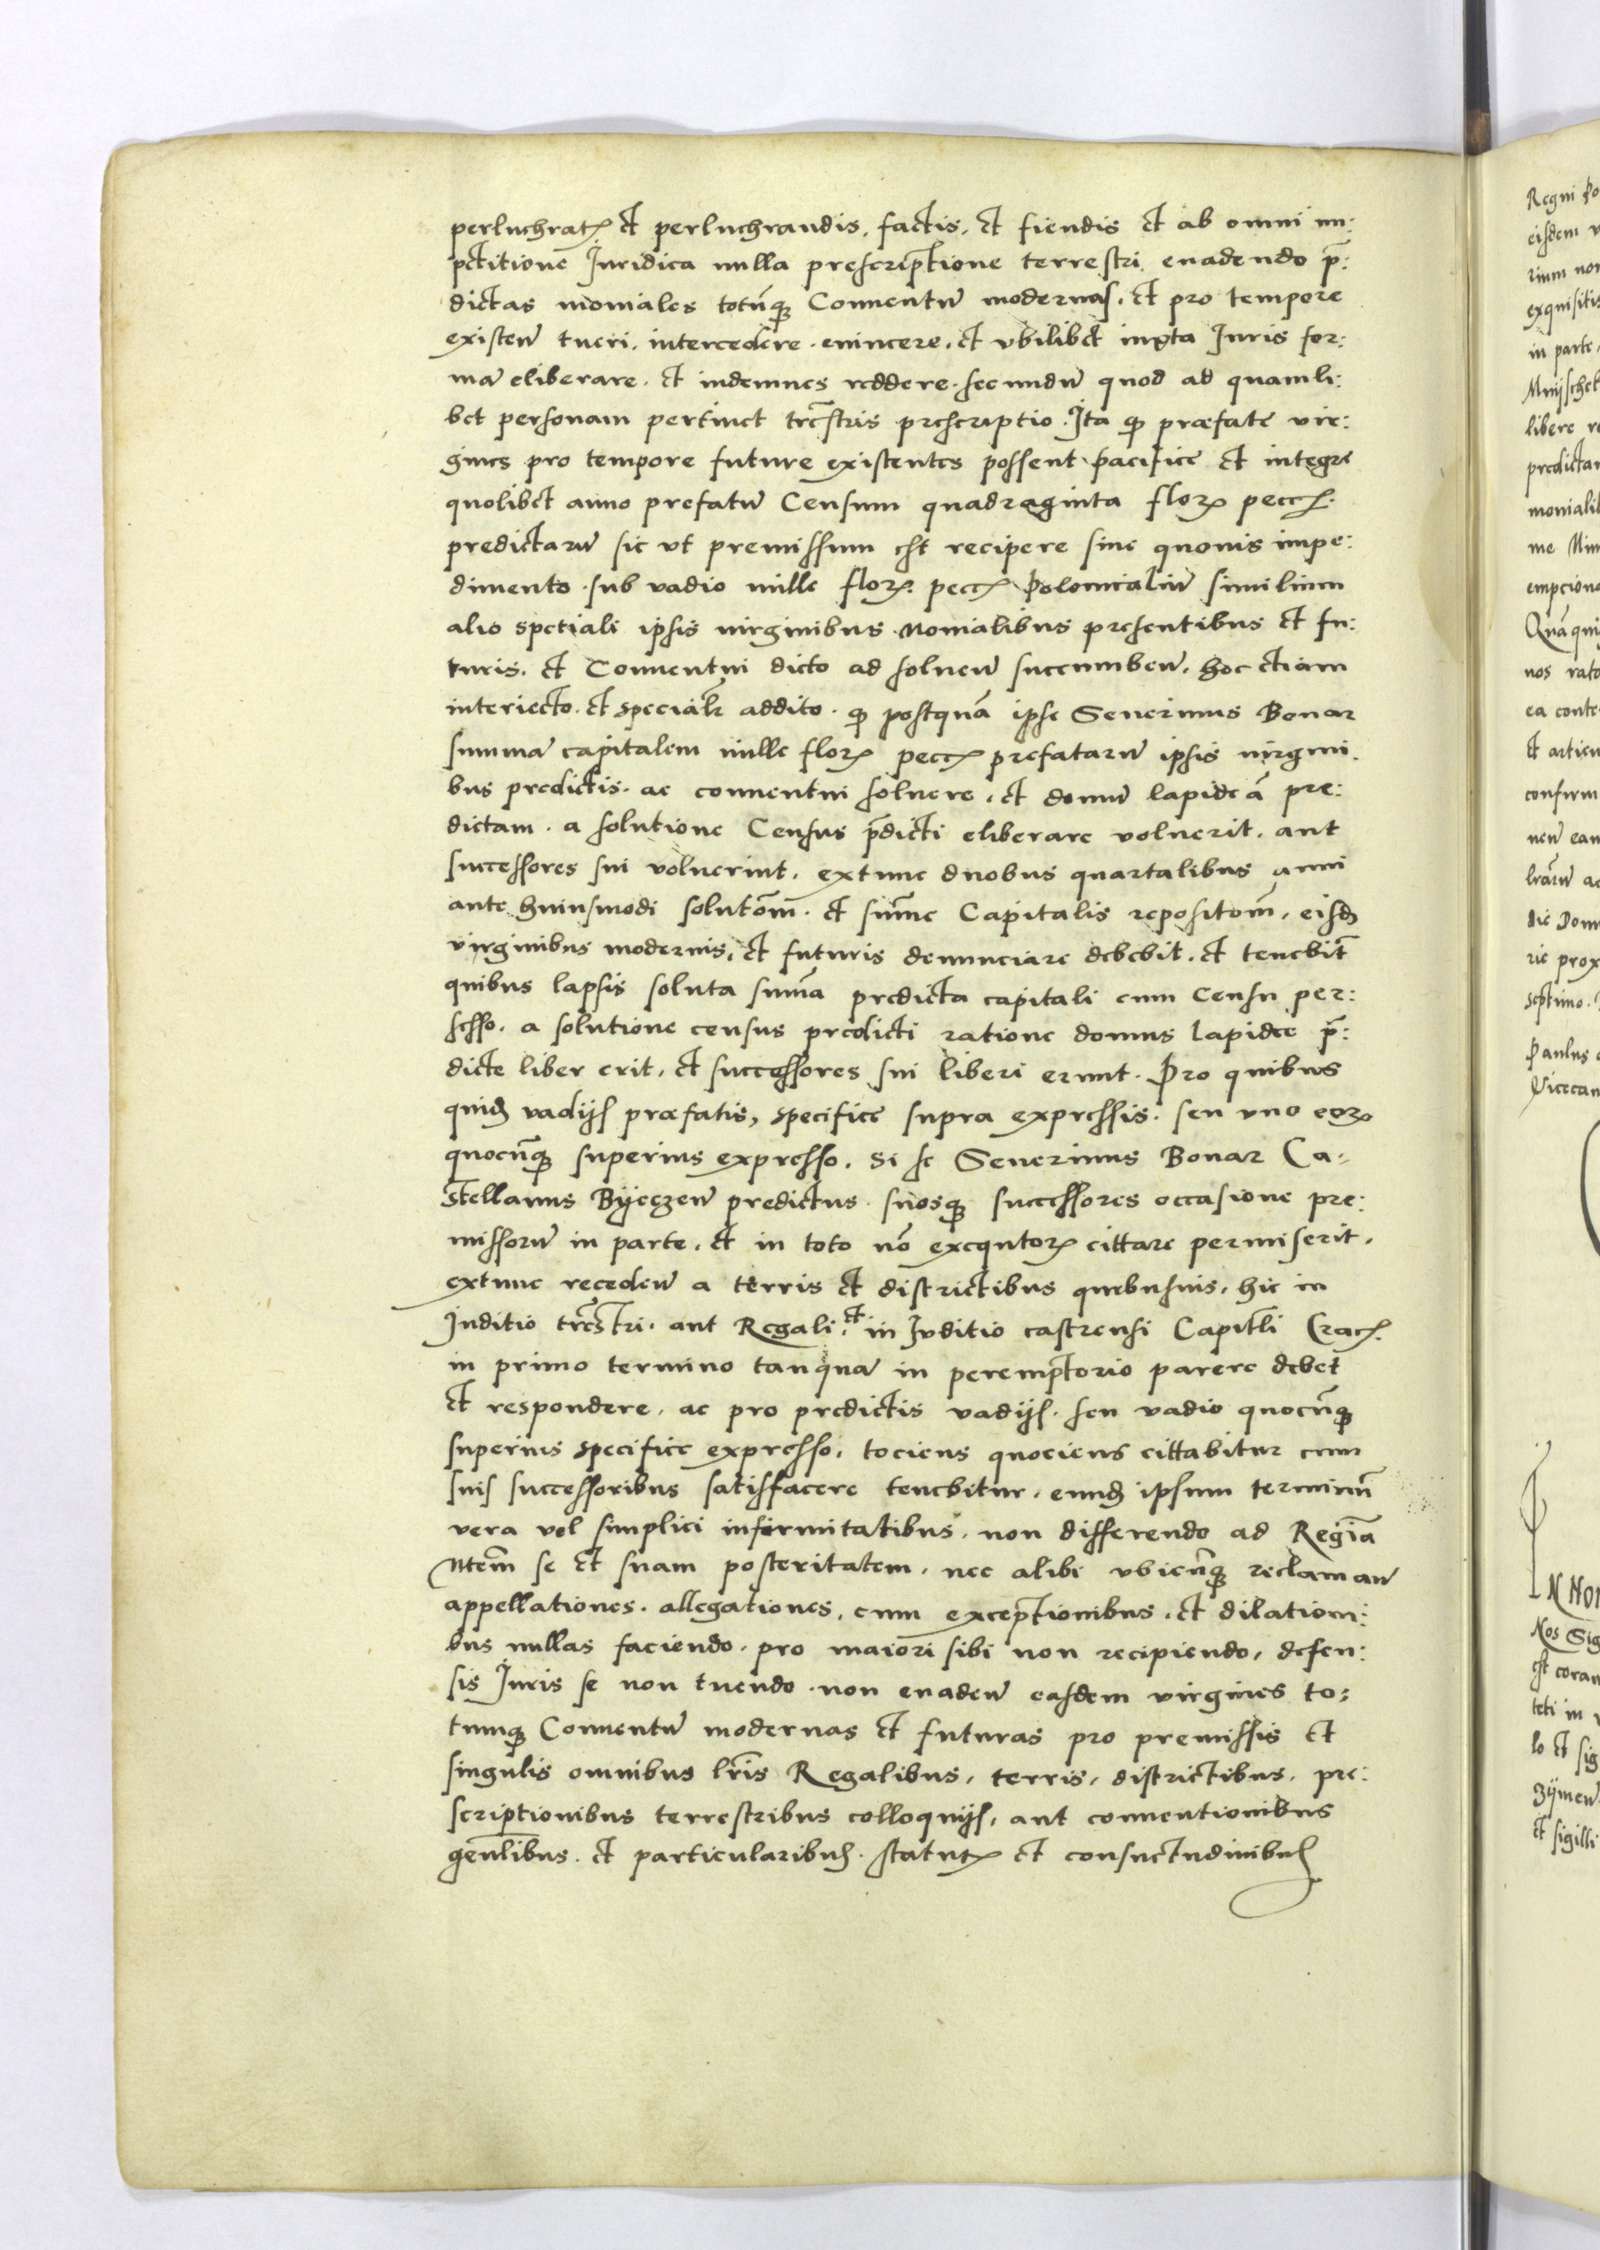 perluchratꝝ et perluchrandis, factis, et fiendis et ab omni im:
petitione Juridica nulla prescriptione terrestri euadendo p̄:
dictas moniales totūqꝫ Conuentū modernas, et pro tempore
existeñ tueri, intercedere, euincere, et vbilibet iuxta Juris for:
mā eliberare, et indemnes reddere, secundū quod ad quamli:
bet personam pertinet trēstris prescriptio. Ita ꝙ præfate vir:
gines pro tempore future existentes possent pacifice et integre
quolibet anno prefatū Censum quadraginta floꝝ peccꝝ.
predictarū sic vt premissum est recipere sine quouis impe:
dimento. sub vadio mille floꝝ. peccꝝ Polonicaliū similium
alio spetiali ipsis virginibus Monialibus presentibus et fu:
turis, et Conuentui dicto ad solueñ succumbeñ, hoc etiam
interiecto, et specialr̄ addito. ꝙ postquā ipse Seuerinus Bonar
summā capitalem mille floꝝ peccꝝ prefatarū ipsis virgini:
bus predictis. ac conuentui soluere, et domū lapideā pre:
dictam. a solutione Census p̄dicti eliberare voluerit. aut
successores sui voluerint, extunc duobus quartalibus anni
ante huiusmodi solutōm̄. et sum̄e Capitalis repositom̄, eisdꝫ
virginibus modernis, et futuris denunciare debebit. et tenebit̄
quibus lapsis soluta sum̄a predicta capitali cum Censu per:
sesso. a solutione census predicti ratione domus lapidee p̄:
dicte liber erit, et successores sui liberi erunt. Pro quibus
quidꝫ vadijs præfatis, specifice supra expressis. seu vno eoꝝ
quocūqꝫ superius expresso. Si se Seuerinus Bonar Ca-
stellanus Byeczeñ predictus. suosqꝫ successores occasione pre:
missorū in parte, et in toto nō exequtoꝝ cittare permiserit,
extunc recedeñ a terris et districtibus quibusuis, hic in
Juditio trēstri. aut Regali, et in Juditio castrensi Capitli Cracꝝ.
in primo termino tanquā in peremptorio parere debet
et respondere, ac pro predictis vadijs. seu vadio quocūqꝫ
superius specifice expresso, tociens quociens cittabitur cum
suis successoribus satisfacere tenebitur, eundꝫ ipsum terminū
vera vel simplici infirmitatibus. non differendo ad Regiā
Mtēm se et suam posteritatem, nec alibi vbicūqꝫ reclamañ
appellationes. allegationes, cum exceptionibus, et dilationi:
bus nullas faciendo. pro maiori sibi non recipiendo, defen:
sis Juris se non tuendo. non euadeñ easdem virgines to:
tumqꝫ Conuentū modernas et futuras pro premissis et
singulis omnibus lr̄is Regalibus, terris, districtibus, pre:
scriptionibus terrestribus colloquijs, aut conuentionibus
gen̄libus. et particularibus. statutꝝ et consuetudinibus